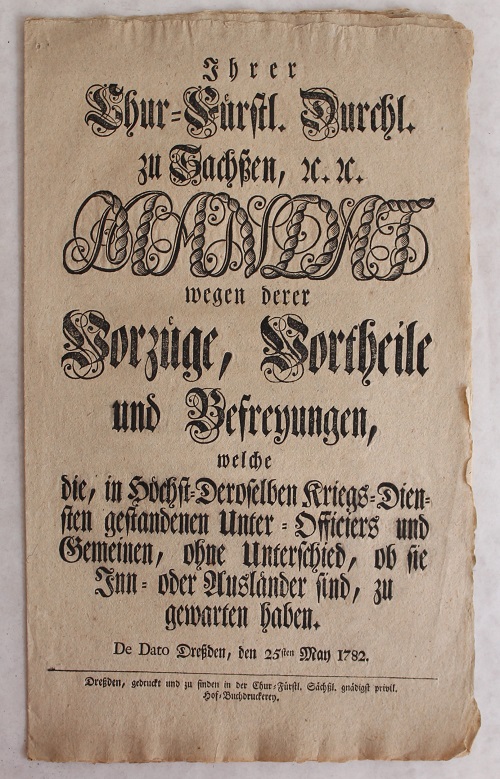 Ihrer
Chur-Fürstl. Durchl.
zu Sachßen, ꝛc. ꝛc.
MANDAT
wegen derer
Vorzüge, Vortheile
und Befreyungen,
welche
die, in Höchst-Deroselben Kriegs-Dien-
sten gestandenen Unter-Officiers und
Gemeinen, ohne Unterschied, ob sie
Inn- oder Ausländer sind, zu
gewarten haben.
De Dato Dreßden, den 25sten May 1782.
Dreßden, gedruckt und zu finden in der Chur-Fürstl. Sächßl. gnädigst privil.
Hof-Buchdruckerey.